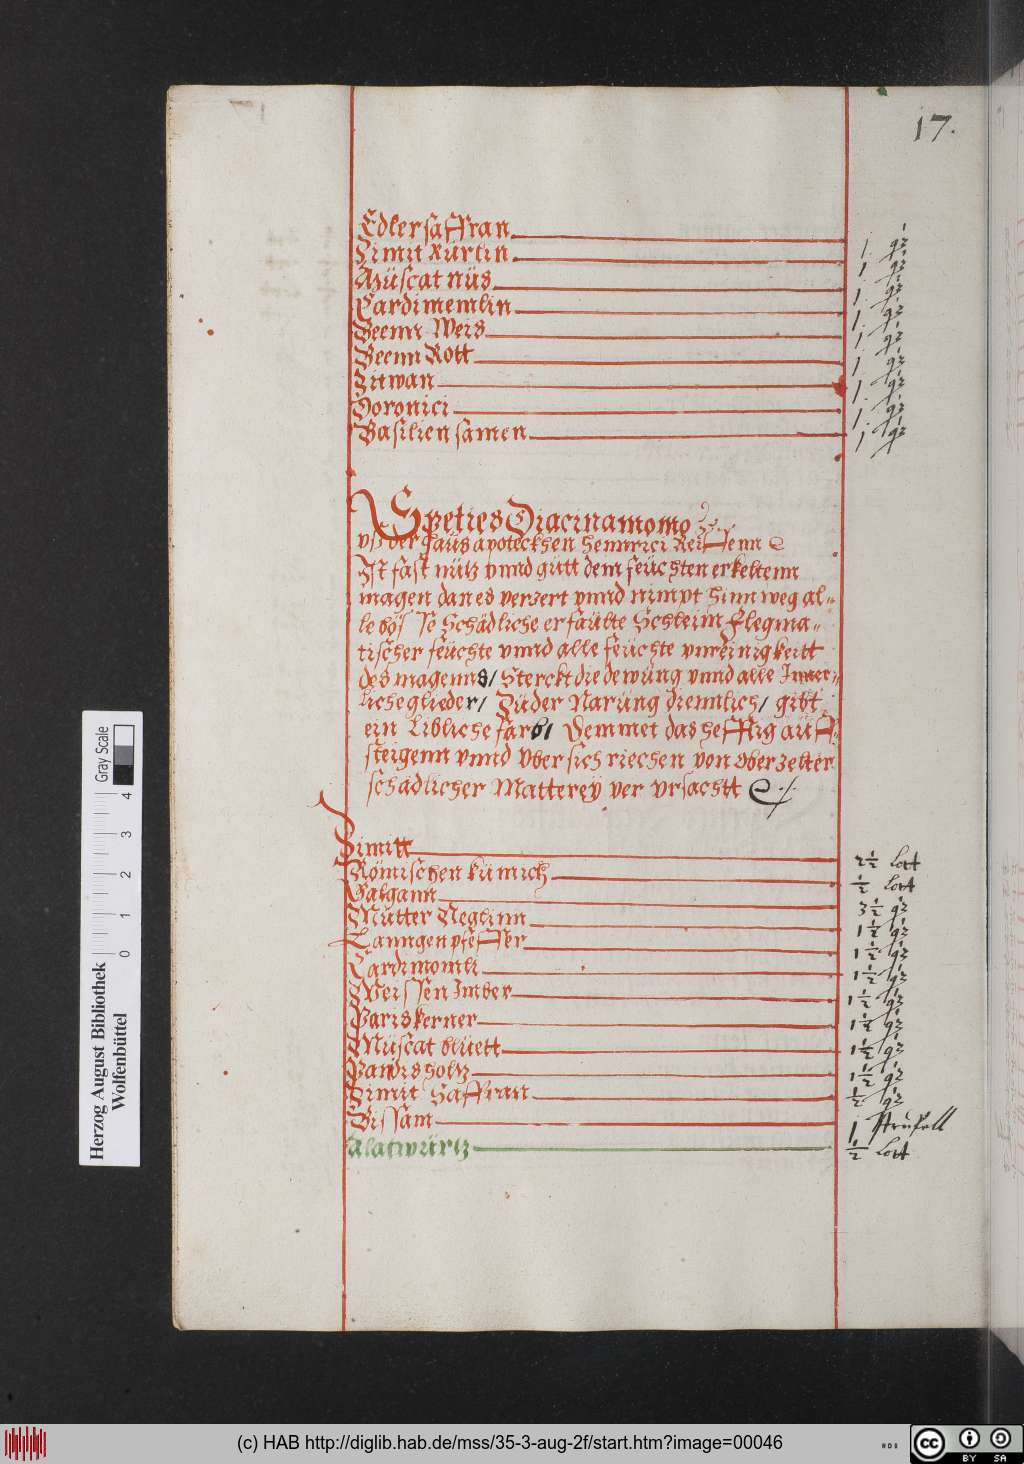 17.
Edler saffran 1 qr
Zimit Rürlin 1 qr
Müscat nüs 1. qr
Cardimemlin 1. qr
Beemi Weis 1. qr
Beemi Rott 1 qr
Zitwan 1. qr
Doronici 1. qr
Basilien samen 1 qr
Speties Diacinamomo
vß der Haus apoteckhen Heinrici
Ist fast nütz vnnd gůtt dem feüchten erkeltenn
magen dan es verzert vnnd nimpt hinn weg al-
le böß se Schädliche erfaulte Schleim Flegma-
tischer feüchte vnnd alle feüchte vnreinigkeitt
des magenns/ Sterckt die dewüng vnnd alle Inner-
liche glieder/ Zü der Narüng diennlich/ gibt
ein Libliche farb/ Demmet das hefftig auff-
steigenn vnnd vbersich riechen von vberzelter
schädlicher Matterey ver vrsachtt
Zimitt 2½ Lott
Römischen kümich ½ Lott
Galgann 3½ qr
Mütter Neglinn 1½ qr
Lanngenpfeffer 1½ qr
Cardimomli 1½ qr
Weissen Imber 1½ qr
Pariskerner 1½ qr
Müscat blüett 1½ qr
Paradisholtz 1½ qr
Zimit Saffran ½ qr
Bissam 1 strupell
Alatwürtz ½ Lott
Herzog August Bibliothek
Wolfenbüttel
0 1 2 3 4
Gray Scale
(c) HAB http://diglib.hab.de/mss/35-3-aug-2f/start.htm?image=00046
cc BY SA